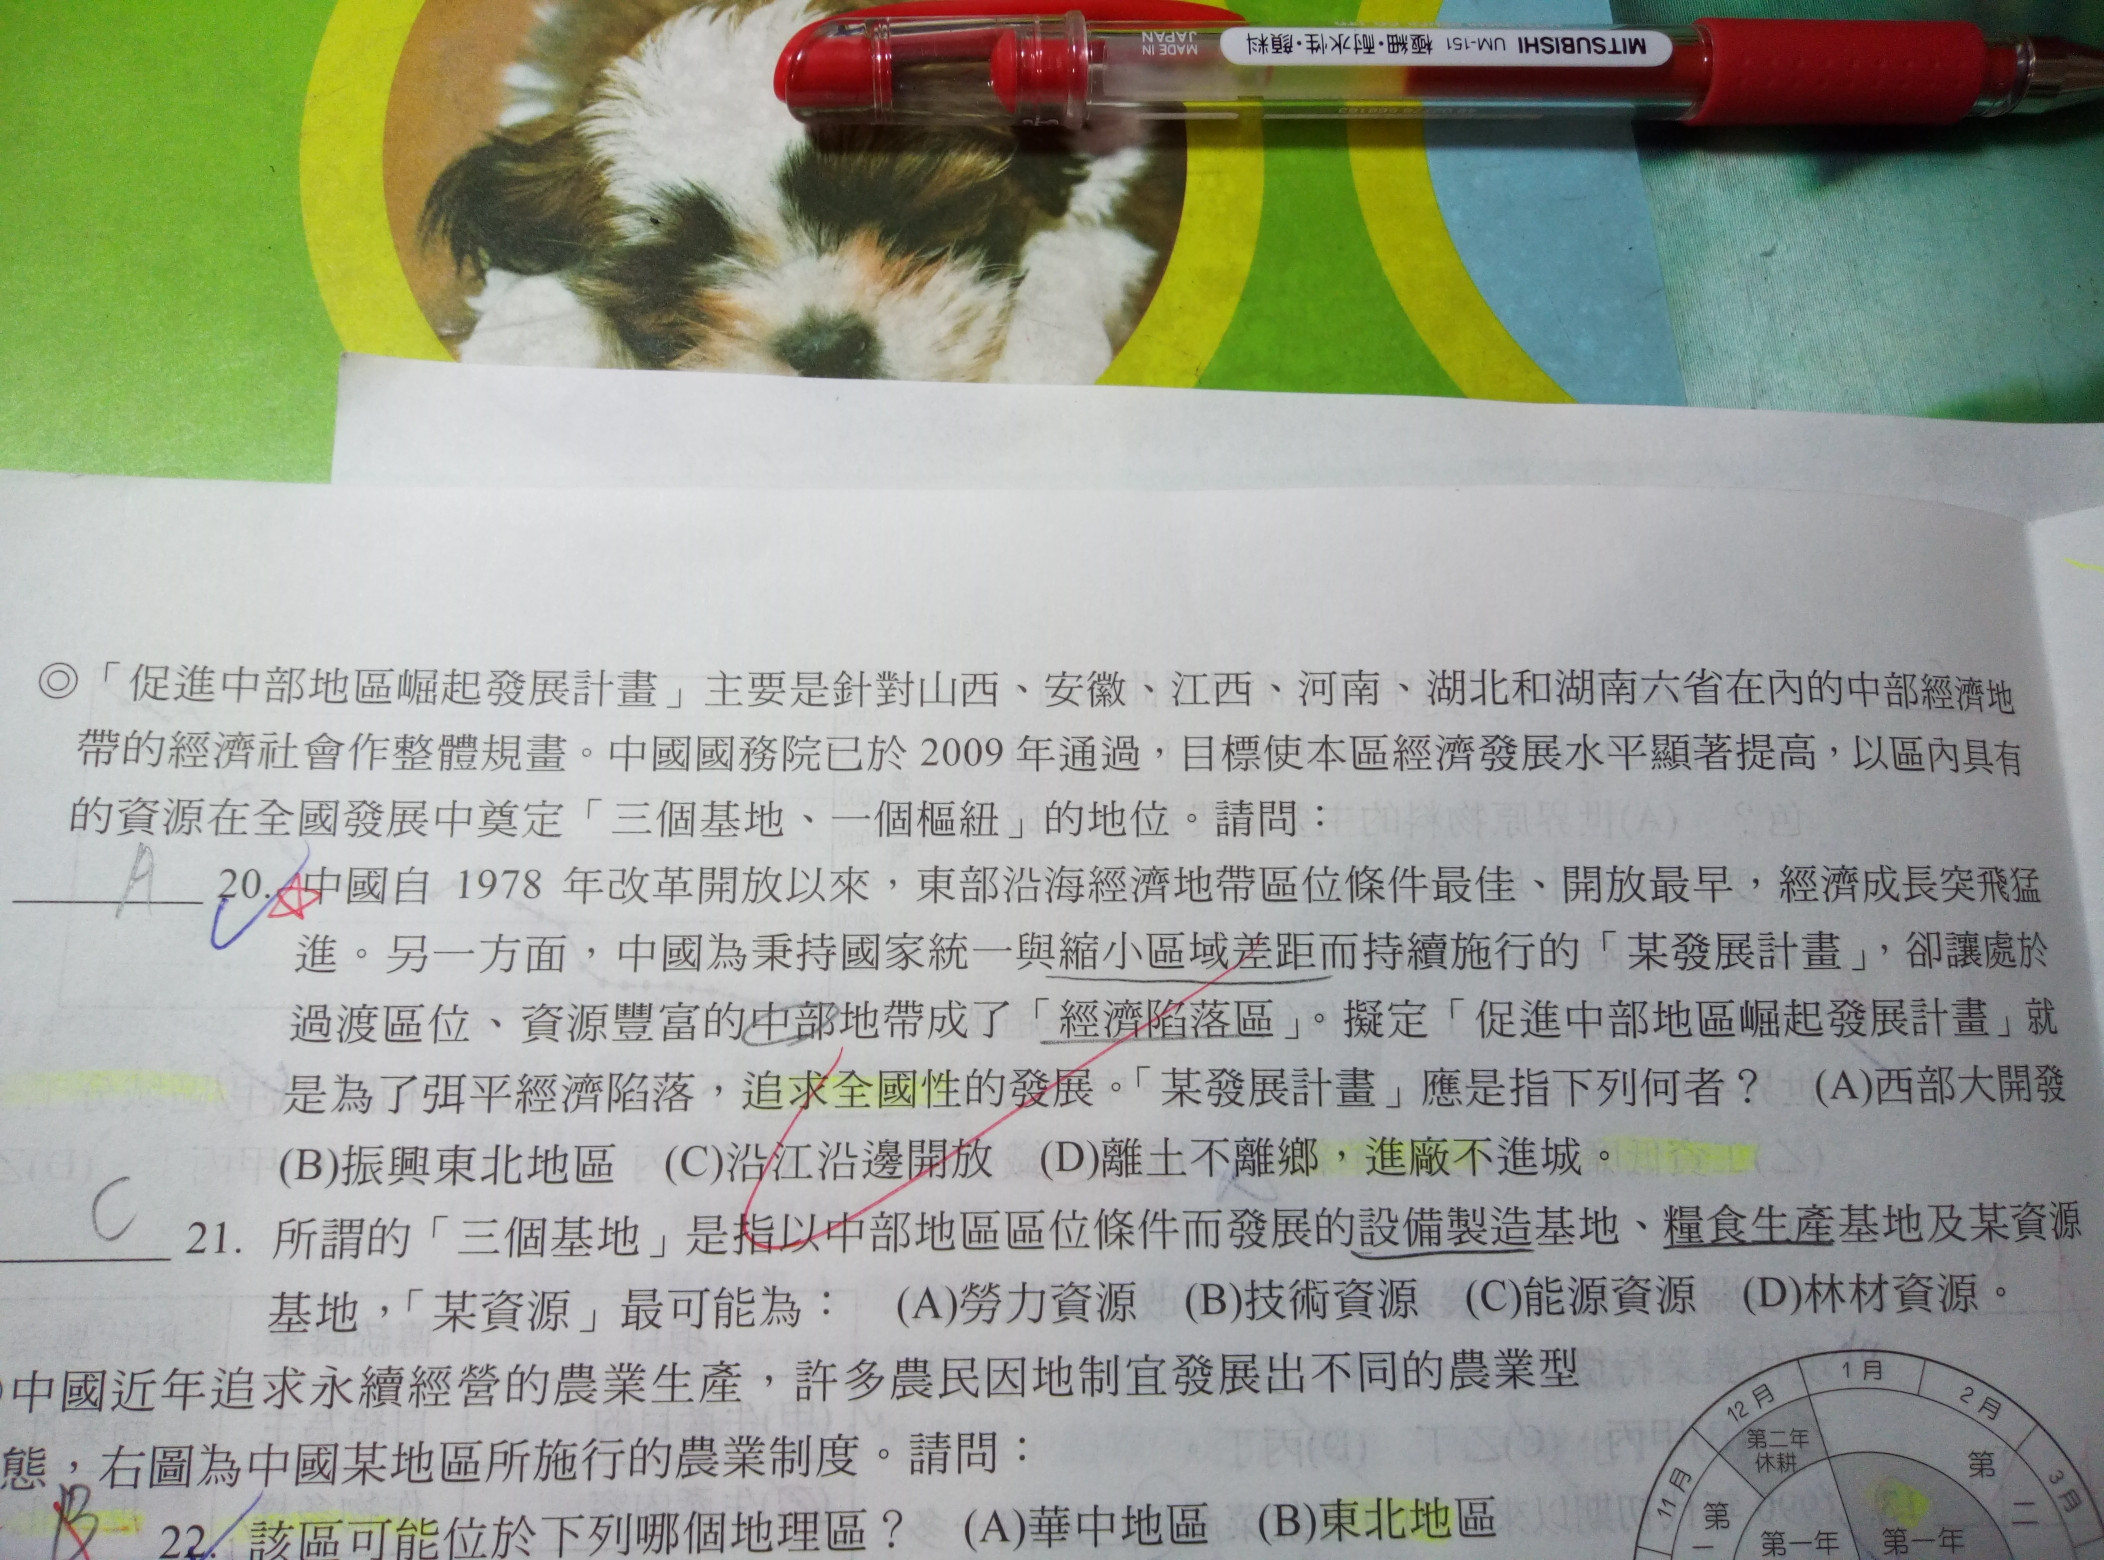 MITSUBISHI UM-151 極細・耐水性・顔料
MADE IN JAPAN
◎「促進中部地區崛起發展計畫」主要是針對山西、安徽、江西、河南、湖北和湖南六省在內的中部經濟地
帶的經濟社會作整體規畫。中國國務院已於 2009 年通過，目標使本區經濟發展水平顯著提高，以區內具有
的資源在全國發展中奠定「三個基地、一個樞紐」的地位。請問：
A 20. 中國自 1978 年改革開放以來，東部沿海經濟地帶區位條件最佳、開放最早，經濟成長突飛猛
進。另一方面，中國為秉持國家統一與縮小區域差距而持續施行的「某發展計畫」，卻讓處於
過渡區位、資源豐富的中部地帶成了「經濟陷落區」。擬定「促進中部地區崛起發展計畫」就
是為了弭平經濟陷落，追求全國性的發展。「某發展計畫」應是指下列何者？ (A)西部大開發
(B)振興東北地區 (C)沿江沿邊開放 (D)離土不離鄉，進廠不進城。
C 21. 所謂的「三個基地」是指以中部地區區位條件而發展的設備製造基地、糧食生產基地及某資源
基地，「某資源」最可能為： (A)勞力資源 (B)技術資源 (C)能源資源 (D)林材資源。
中國近年追求永續經營的農業生產，許多農民因地制宜發展出不同的農業型
態，右圖為中國某地區所施行的農業制度。請問：
B 22. 該區可能位於下列哪個地理區？ (A)華中地區 (B)東北地區
11月 12月 1月 2月 3月
第二年
休耕
第一
第二
第一年 第一年